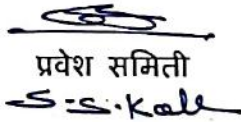 प्रवेश समिती
S-S.Kale